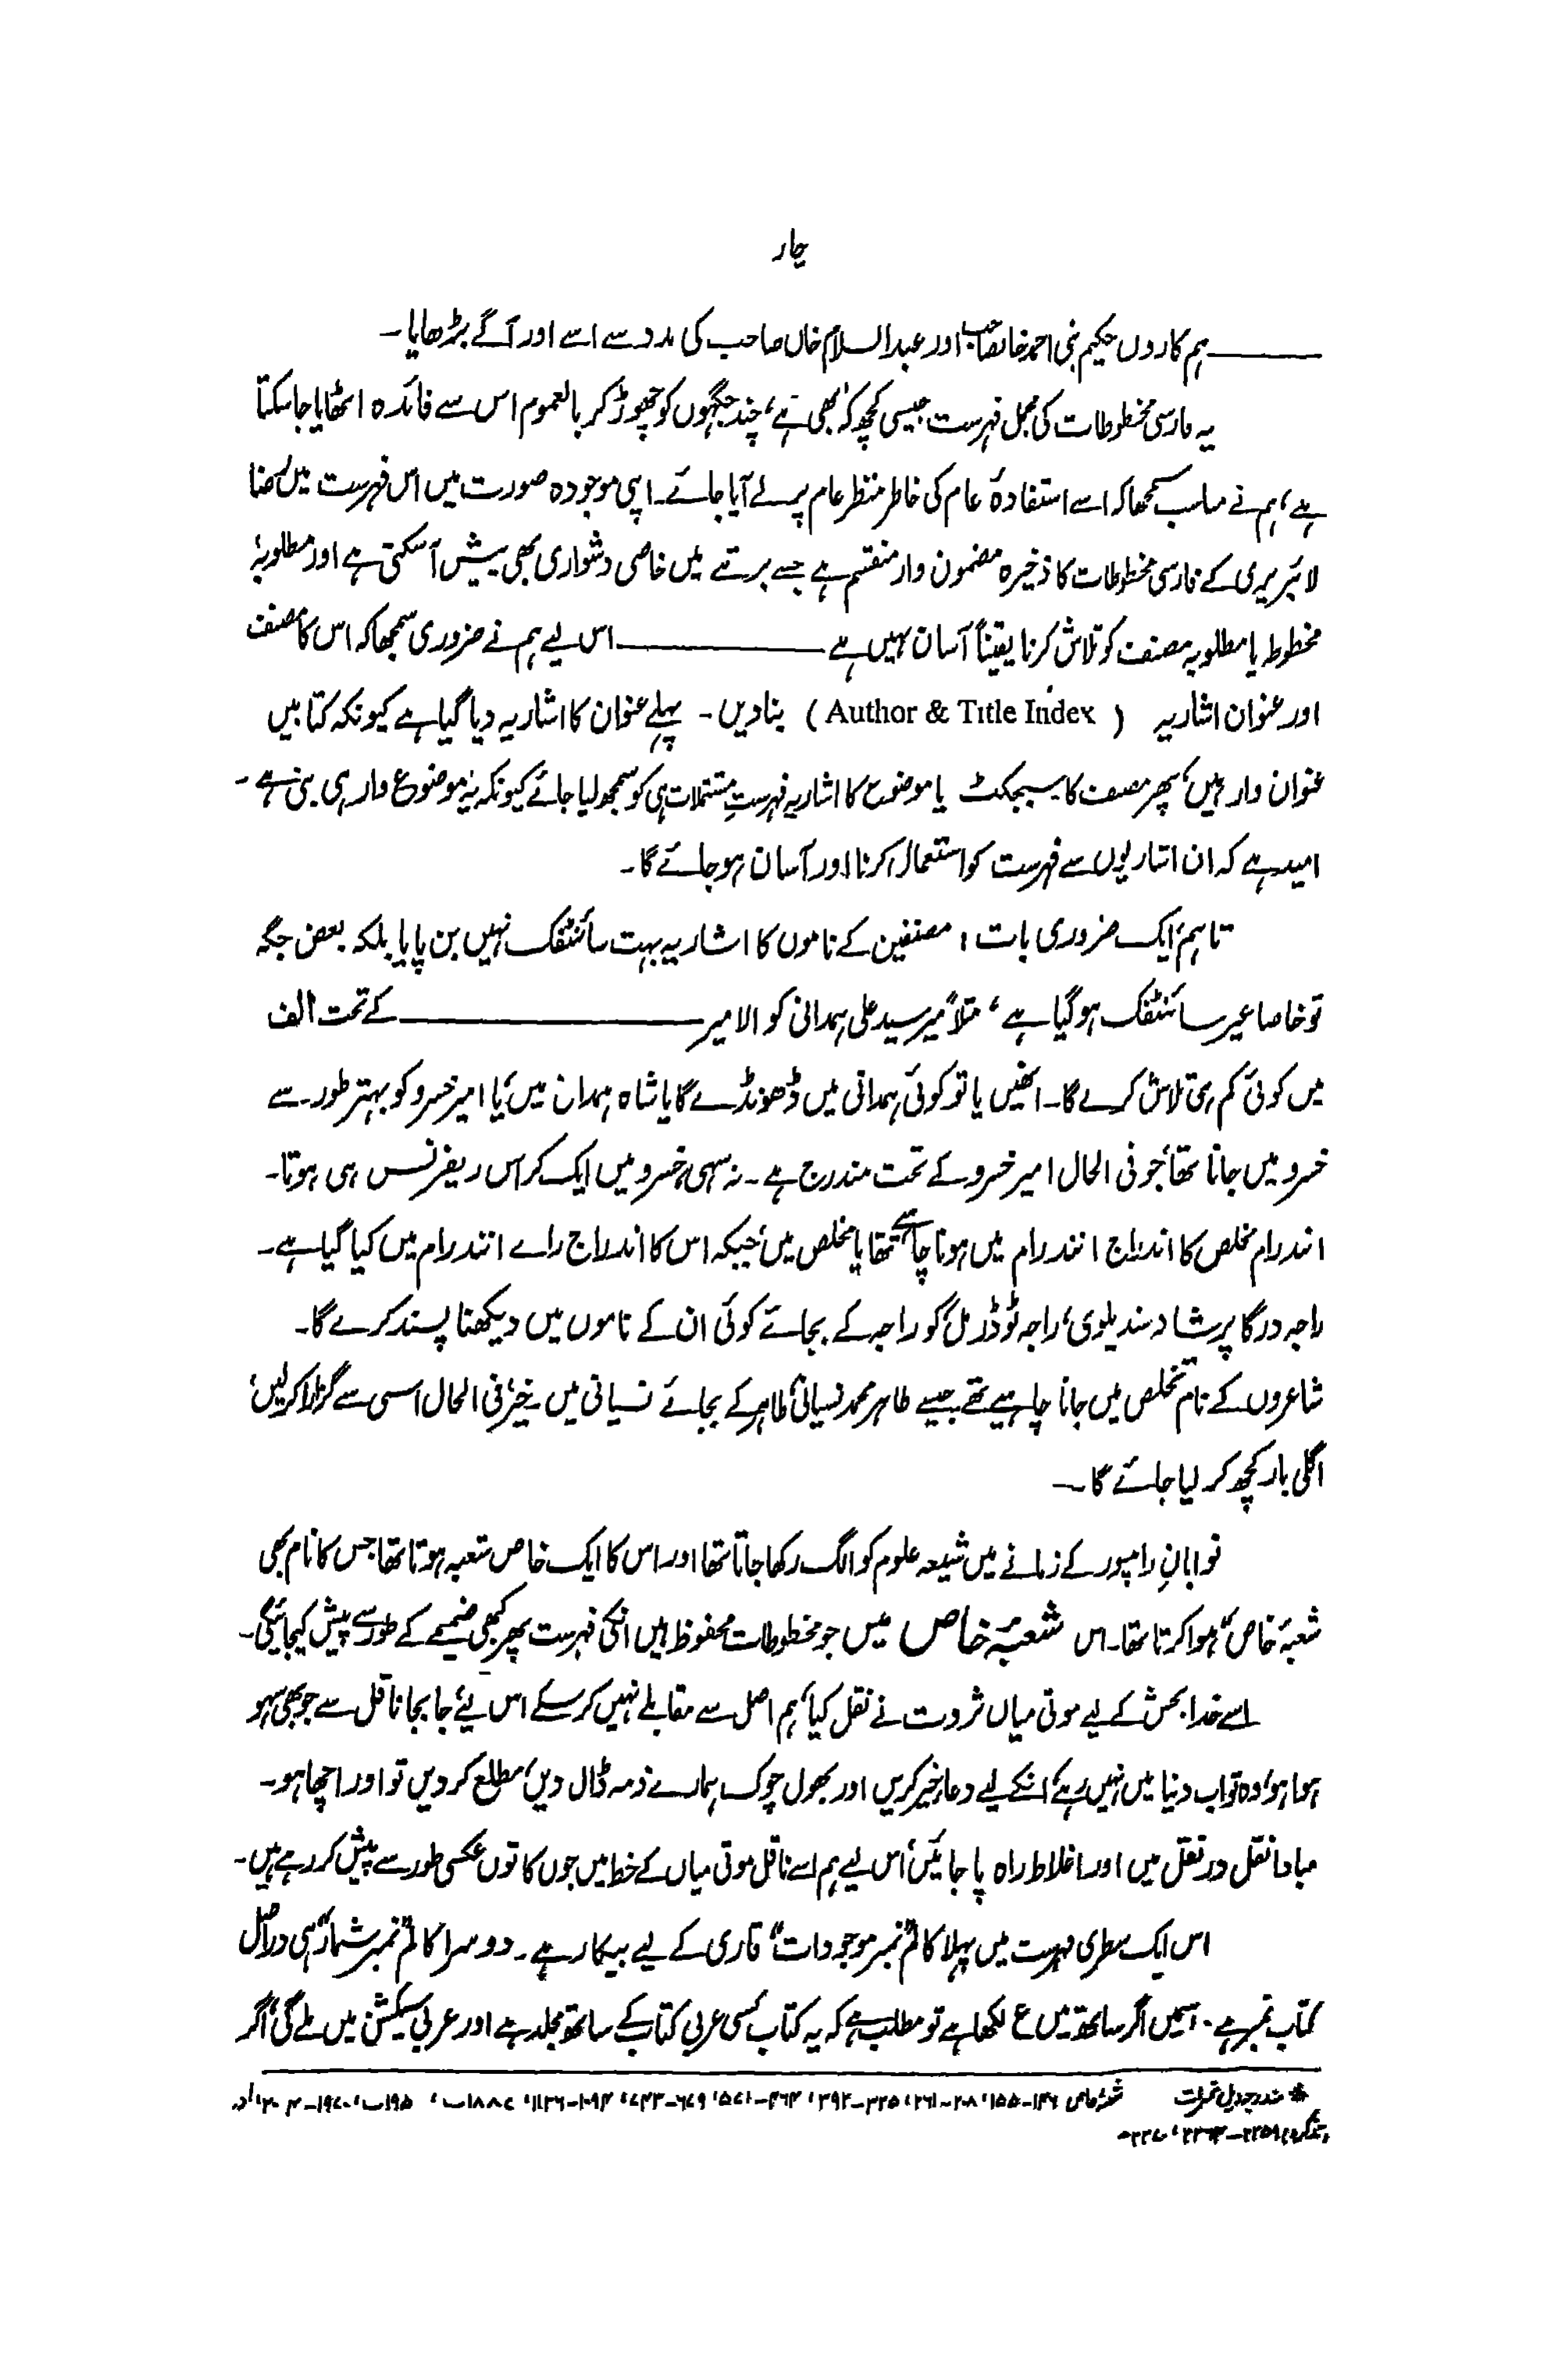 چار
ہم کاروں حکیم نبی احمد خانصاحب اور عبدالسلام خاں صاحب کی مدد سے اسے اور آگے بڑھایا۔
یہ فارسی مخطوطات کی مجمل فہرست جیسی کچھ کہ بھی ہے، چند جگہوں کو چھوڑ کر بالعموم اس سے فائدہ اٹھایا جا سکتا
ہے، ہم نے مناسب سمجھا کہ اسے استفادۂ عام کی خاطر منظر عام پر لے آیا جائے۔ اپنی موجودہ صورت میں اس فہرست میں رضا
لائبریری کے فارسی مخطوطات کا ذخیرہ مضمون وار منقسم ہے جسے برتنے میں خاصی دشواری بھی پیش آسکتی ہے اور مطلوبہ
مخطوطہ یا مطلوبہ مصنف کو تلاش کرنا یقیناً آسان نہیں ہے ـــــــ اس لیے ہم نے ضروری سمجھا کہ اس کا مصنف
اور عنوان اشاریہ (Author & Title Index) بنا دیں۔ پہلے عنوان کا اشاریہ دیا گیا ہے کیونکہ کتابیں
عنوان وار ہیں، پھر مصنف کا۔ سبجکٹ یا موضوع کا اشاریہ فہرستِ مشتملات ہی کو سمجھ لیا جائے کیونکہ یہ موضوع وار ہی بنی ہے۔
امید ہے کہ ان اشاریوں سے فہرست کو استعمال کرنا اور آسان ہو جائے گا۔
تاہم ایک ضروری بات: مصنفین کے ناموں کا اشاریہ بہت سائنٹفک نہیں بن پایا بلکہ بعض جگہ
تو خاصا غیر سائنٹفک ہوگیا ہے، مثلاً میر سید علی ہمدانی کو الامیر ـــــــ کے تحت الف
میں کوئی کم ہی تلاش کرے گا۔ انھیں یا تو کوئی ہمدانی میں ڈھونڈے گا یا شاہ ہمدان میں، یا امیر خسرو کو بہتر طور سے
خسرو میں جانا تھا، جو فی الحال امیر خسرو کے تحت مندرج ہے۔ نہ سہی، خسرو میں ایک کراس ریفرنس ہی ہوتا۔
انند رام مخلص کا اندراج انند رام میں ہونا چاہیے تھا یا مخلص میں، جبکہ اس کا اندراج راے انند رام میں کیا گیا ہے۔
راجہ درگا پرشاد سندیلوی، راجہ ٹوڈرمل کو راجہ کے بجائے کوئی ان کے ناموں میں دیکھنا پسند کرے گا۔
شاعروں کے نام تخلص میں جانا چاہیے تھے جیسے طاہر محمد نسیانی، طاہر کے بجائے نسیانی میں۔ خیر، فی الحال اسی سے گزارا کرلیں،
اگلی بار کچھ کر لیا جائے گا۔
نوابانِ رامپور کے زمانے میں شیعہ علوم کو الگ رکھا جاتا تھا اور اس کا ایک خاص شعبہ ہوتا تھا جس کا نام بھی
شعبۂ خاص، ہوا کرتا تھا۔ اس شعبۂ خاص میں جو مخطوطات محفوظ ہیں انکی فہرست پھر کبھی ضمیمے کے طور سے پیش کیجائیگی۔
اسے خدا بخش کے لیے موتی میاں ثروت نے نقل کیا، ہم اصل سے مقابلے نہیں کر سکے اس لیے جا بجا ناقل سے جو بھی سہو
ہوا ہو، وہ تو اب دنیا میں نہیں رہے، انکے لیے دعاء خیر کریں اور بھول چوک ہمارے ذمہ ڈال دیں، مطلع کر دیں تو اور اچھا ہو۔
مبادا نقل در نقل میں اور اغلاط راہ پا جائیں، اس لیے ہم اسے ناقل موتی میاں کے خط میں جوں کا توں عکسی طور سے پیش کر رہے ہیں۔
اس ایک سطری فہرست میں پہلا کالم "نمبر موجودات" قاری کے لیے بیکار ہے۔ دوسرا کالم "نمبر شمار" ہی دراصل
کتاب نمبر ہے۔ اسمیں اگر ساتھ میں ع لکھا ہے تو مطلب ہے کہ یہ کتاب کسی عربی کتاب کے ساتھ مجلد ہے اور عربی سیکشن میں ملے گی، اگر
* ۱۴۶–۱۵۵، ۲۰۸–۲۶۱، ۳۳۵–۳۹۲، ۴۶۳–۵۷۱،